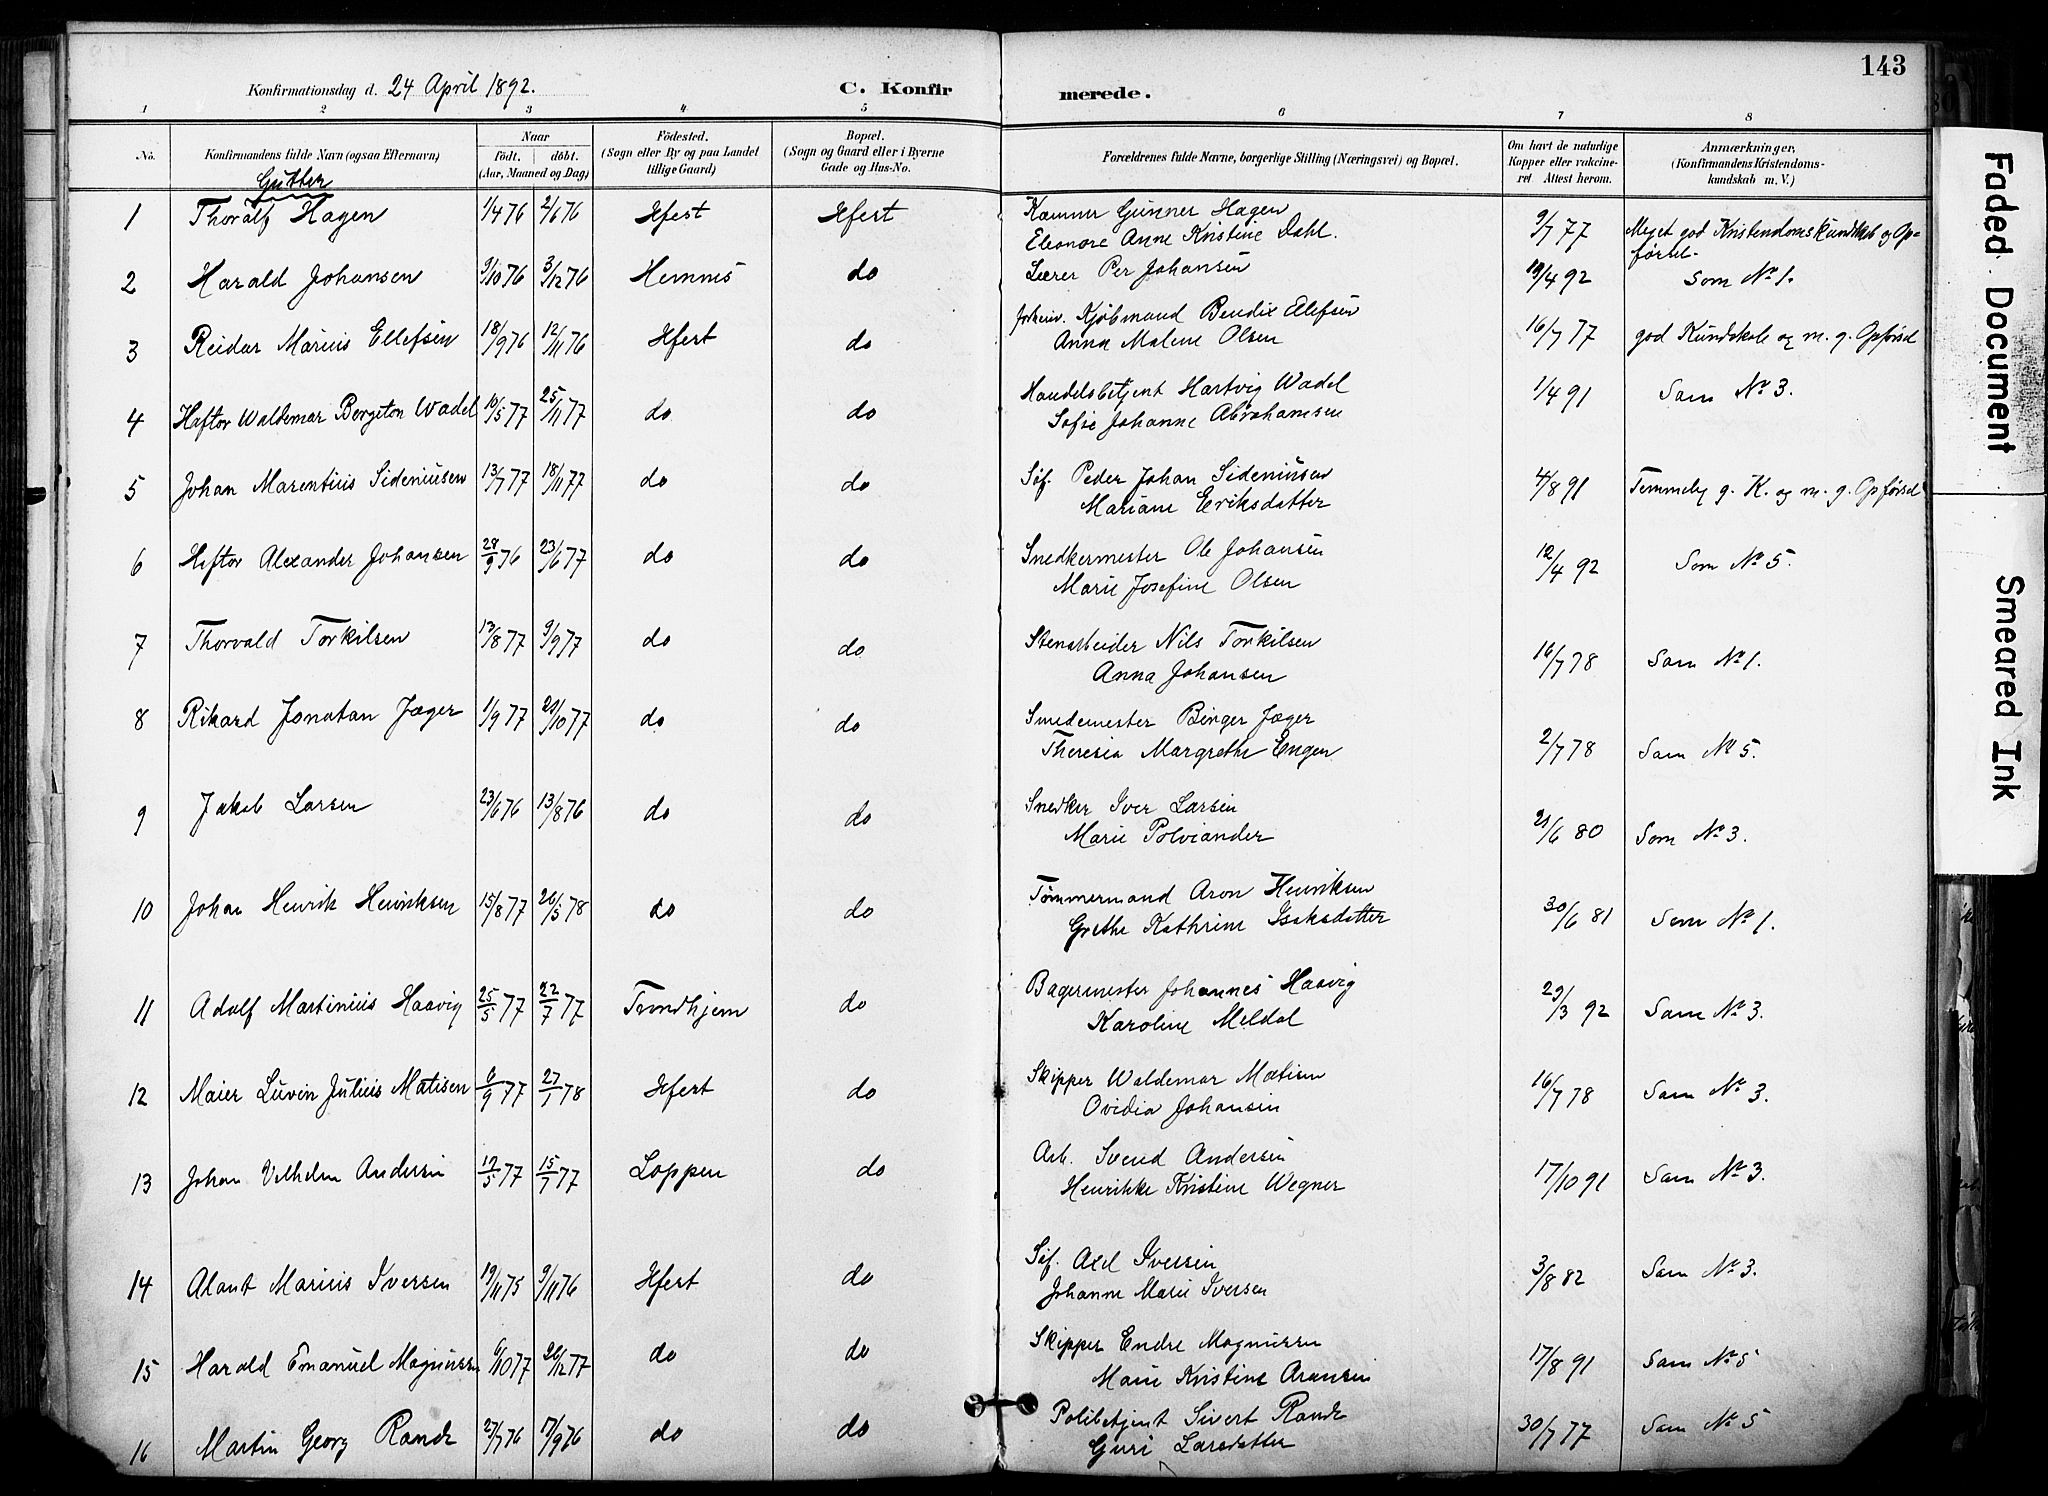 143
Konfirmationsdag d. 24 April 1892.
C. Konfirmerede.
1 2 3 4 5 6 7 8
No.
Konfirmandens fulde Navn (ogsaa Efternavn)
Naar
født. døbt.
(Aar, Maaned og Dag)
Fødested.
(Sogn eller By og paa Landet
tillige Gaard)
Bopæl.
(Sogn og Gaard eller i Byerne
Gade og Hus-No.
Forældrenes fulde Navne, borgerlige Stilling (Næringsvei) og Bopæl.
Om havt de naturlige
Kopper eller vakcine-
ret Attest herom.
Anmærkninger.
(Konfirmandens Kristendoms-
kundskab m. V.)
Gutter
1 Thoralf Hagen 1/4 76 2/6 76 Hfest Hfest Kæmner Gunner Hagen 9/7 77 Meget god Kristendomskundskab og Op=
Eleonore Anne Kristine Dahl. førsel.
2 Harald Johansen 9/10 76 3/12 76 Hemnes do Lærer Per Johansen 19/4 92 Som No 1.
3 Reidar Marius Ellefsen 18/9 76 12/11 76 Hfest do Kjøbmand Bendix Ellefsen 16/7 77 god Kundskab og m. g. Opførsel
Anna Malene Olsen
4 Haftor Waldemar Bergeton Wadel 10/5 77 25/11 77 do do Handelsbetjent Hartvig Wadel 1/4 91 Som No 3.
Sofie Johanne Abrahamsen
5 Johan Marentius Sideniusen 13/7 77 18/11 77 do do Sif. Peder Johan Sideniusen 4/8 91 Temmelig g. K. og m. g. Opførsel
Mariane Eriksdatter
6 Heftor Alexander Johansen 28/9 76 23/6 77 do do Snedkermester Ole Johansen 12/4 92 Som No 5.
Marie Josefine Olsen
7 Thorvald Torkilsen 13/8 77 9/9 77 do do Stenarbeider Nils Torkilsen 16/7 78 Som No 1.
Anna Johansen
8 Rikard Jonatan Jæger 1/9 77 21/10 77 do do Smedemester Birger Jæger 2/7 78 Som No 5.
Theresia Margrethe Engen
9 Jakob Larsen 23/6 76 13/8 76 do do Snedker Iver Larsen 21/6 80 Som No 3.
Marie Polviander
10 Johan Henrik Henriksen 15/8 77 26/5 78 do do Tømmermand Aron Henriksen 30/6 81 Som No 1.
Grethe Kathrine Isaksdatter
11 Adolf Martinius Haavig 25/5 77 22/7 77 Trondhjem do Bagermester Johannes Haavig 29/3 92 Som No 3.
Karoline Meldal
12 Maier Luvin Julius Matisen 6/9 77 27/1 78 Hfest do Skipper Waldemar Matisen 16/7 78 Som No 3.
Ovidia Johansen
13 Johan Vilhelm Andersen 17/5 77 15/7 77 Loppen do Arb. Svend Andersen 17/10 91 Som No 3.
Henrikke Kristine Wegner
14 Alant Marius Iversen 19/11 75 9/11 76 Hfest do Sif. Axel Iversen 3/8 82 Som No 3.
Johanne Marie Iversen
15 Harald Emanuel Magnussen 6/10 77 26/12 77 do do Skipper Endre Magnussen 17/8 91 Som No 5
Marie Kristine Aronsen
16 Martin Georg Rande 27/7 76 17/9 76 do do Politibetjent Sivert Rande 30/7 77 Som No 5
Guri Larsdatter
Faded Document
Smeared Ink